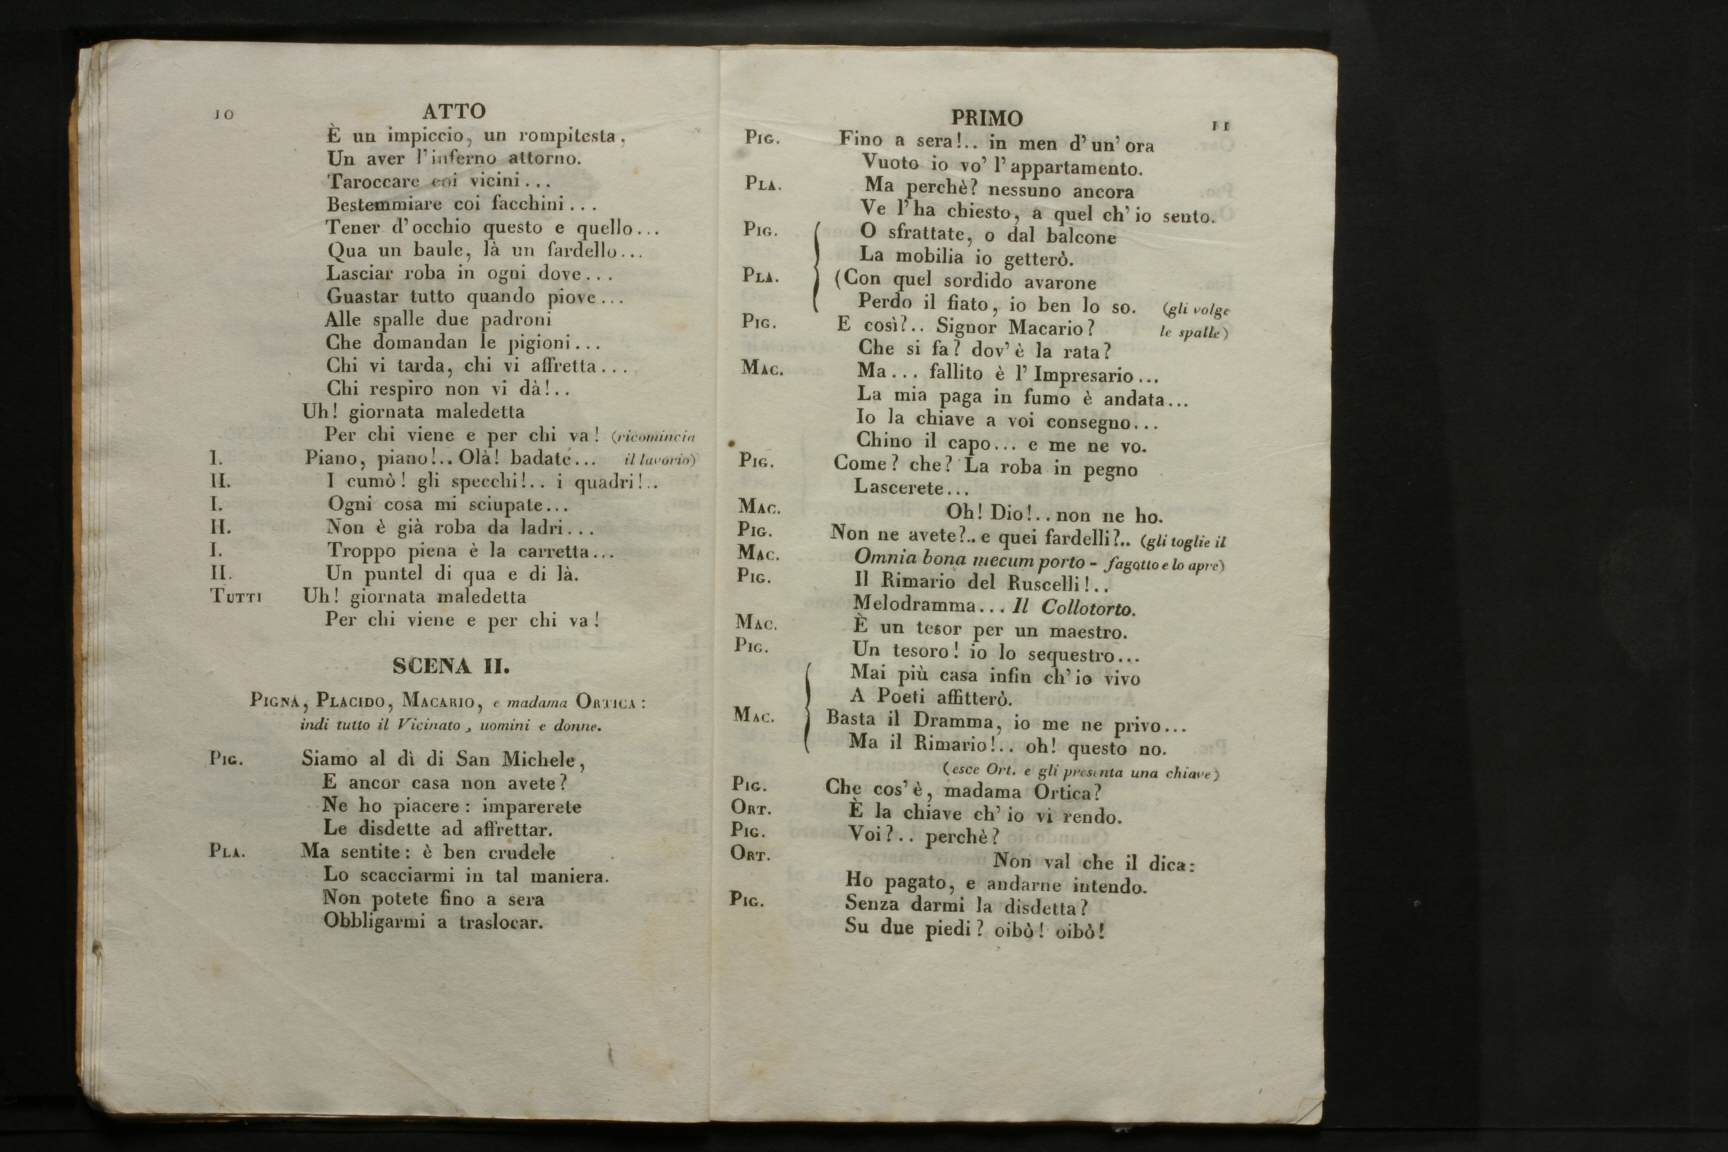 10
ATTO
È un impiccio, un rompitesta,
Un aver l'inferno attorno.
Taroccare coi vicini...
Bestemmiare coi facchini...
Tener d'occhio questo e quello...
Qua un baule, là un fardello...
Lasciar roba in ogni dove...
Guastar tutto quando piove...
Alle spalle due padroni
Che domandan le pigioni...
Chi vi tarda, chi vi affretta...
Chi respiro non vi dà!..
Uh! giornata maledetta
Per chi viene e per chi va! (ricomincia
I. Piano, piano!.. Olà! badate... il lavorio)
II. I cumò! gli specchi!.. i quadri!..
I. Ogni cosa mi sciupate...
II. Non è già roba da ladri...
I. Troppo piena è la carretta...
II. Un puntel di qua e di là.
TUTTI Uh! giornata maledetta
Per chi viene e per chi va!
SCENA II.
PIGNA, PLACIDO, MACARIO, e madama ORTICA:
indi tutto il Vicinato, uomini e donne.
PIG. Siamo al dì di San Michele,
E ancor casa non avete?
Ne ho piacere: imparerete
Le disdette ad affrettar.
PLA. Ma sentite: è ben crudele
Lo scacciarmi in tal maniera.
Non potete fino a sera
Obbligarmi a traslocar.
PRIMO
11
PIG. Fino a sera!.. in men d'un'ora
Vuoto io vo' l'appartamento.
PLA. Ma perchè? nessuno ancora
Ve l'ha chiesto, a quel ch'io sento.
PIG. O sfrattate, o dal balcone
La mobilia io getterò.
PLA. (Con quel sordido avarone
Perdo il fiato, io ben lo so. (gli volge
PIG. E così?.. Signor Macario? le spalle)
Che si fa? dov'è la rata?
MAC. Ma... fallito è l'Impresario...
La mia paga in fumo è andata...
Io la chiave a voi consegno...
Chino il capo... e me ne vo.
PIG. Come? che? La roba in pegno
Lascerete...
MAC. Oh! Dio!.. non ne ho.
PIG. Non ne avete?.. e quei fardelli?.. (gli toglie il
MAC. Omnia bona mecum porto - fagotto e lo apre)
PIG. Il Rimario del Ruscelli!..
Melodramma... Il Collotorto.
MAC. È un tesor per un maestro.
PIG. Un tesoro! io lo sequestro...
Mai più casa infin ch'io vivo
A Poeti affitterò.
MAC. Basta il Dramma, io me ne privo...
Ma il Rimario!.. oh! questo no.
(esce Ort. e gli presenta una chiave)
PIG. Che cos'è, madama Ortica?
ORT. È la chiave ch'io vi rendo.
PIG. Voi?.. perchè?
ORT. Non val che il dica:
Ho pagato, e andarne intendo.
PIG. Senza darmi la disdetta?
Su due piedi? oibò! oibò!